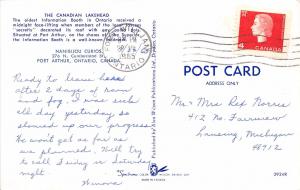 THE CANADIAN LAKEHEAD
The oldest Information Booth in Ontario received a
midnight face-lifting when members of the local
"secrets" decorated its roof with
Situated at Port Arthur, on the
the Information Booth is a well-known
NANIBIJOU CURIOS
276 N. Cumberland St.
PORT ARTHUR, ONTARIO, CANADA
ONTARIO
1965
CANADA
4
POST CARD
ADDRESS ONLY
Ready to leave here
after 2 days of rain
and fog. I was sick all
day yesterday, so
slowed up our progress.
We won't get as far as
we planned. Will try
to call Friday or Saturday
night.
Winona
Mr & Mrs Rex Norris
412 No. Fairview
Lansing, Michigan
48912
39248